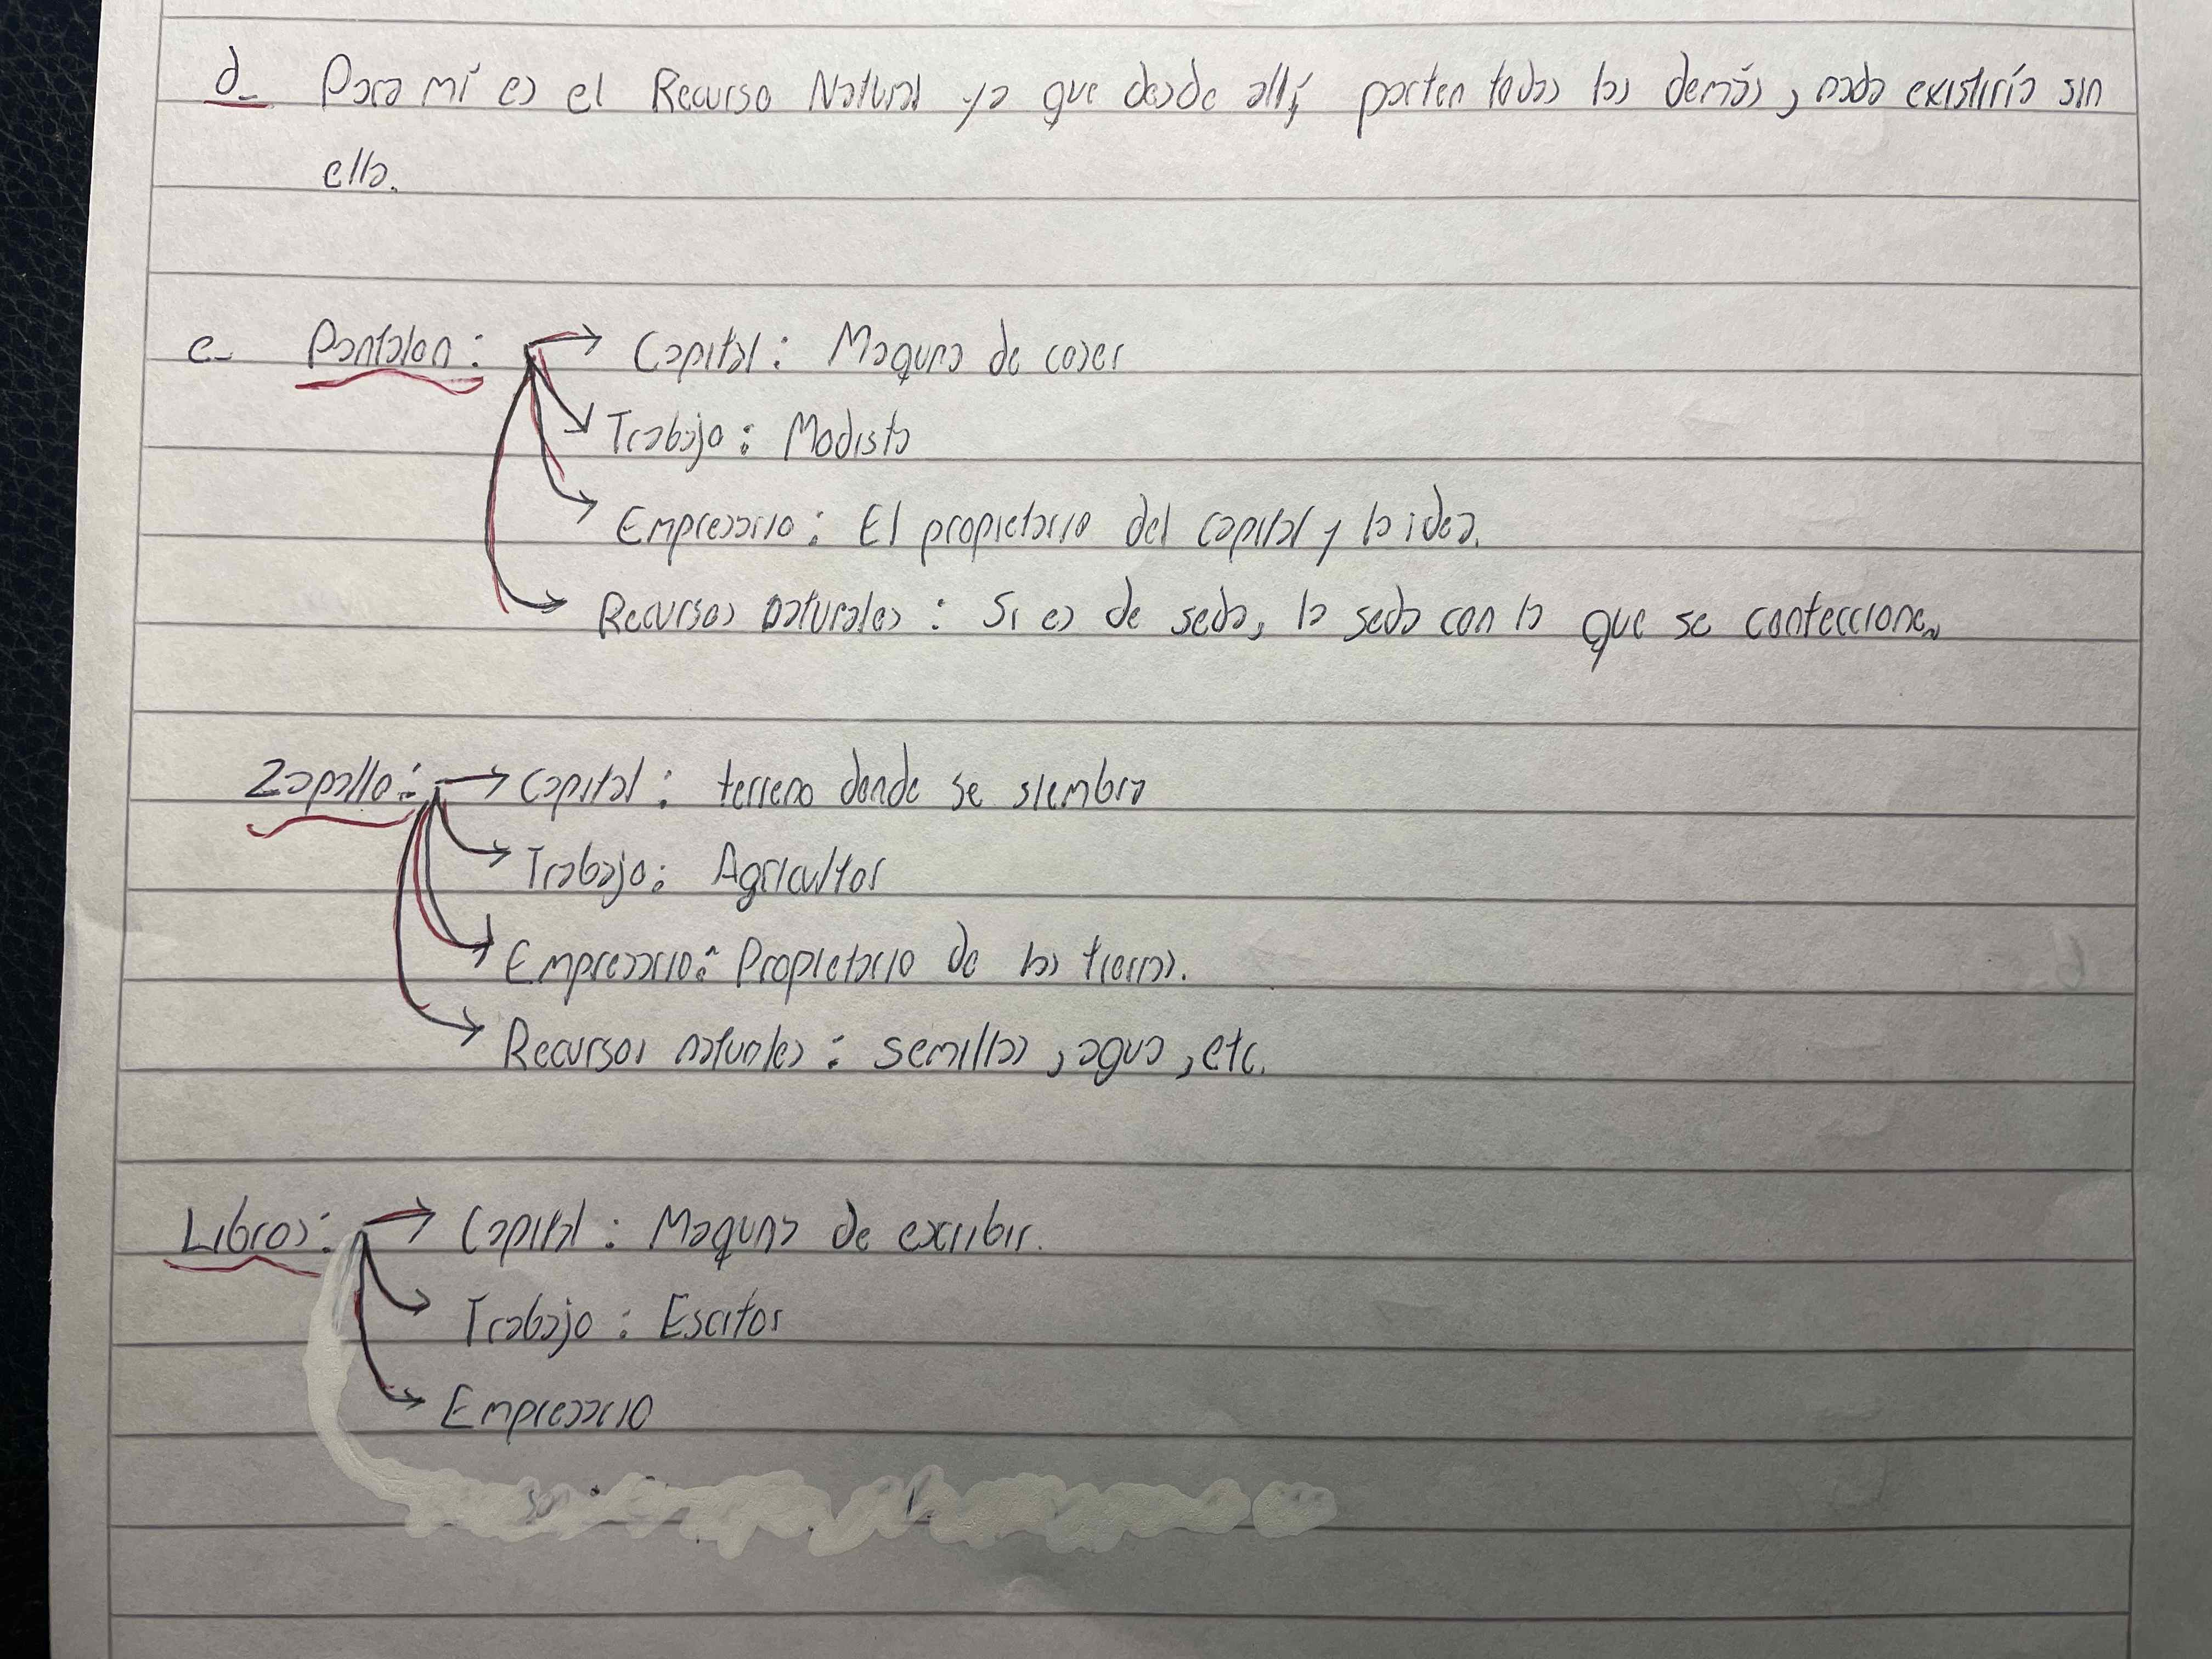 d_ Para mí es el Recurso Natural ya que desde allí parten todos los demás, nada existiría sin
ello.
e_ Pantalon: → Capital: Maquina de coser
→ Trabajo: Modista
→ Empresario: El propietario del capital y la idea.
→ Recursos naturales: Si es de seda, la seda con la que se confeccione.
Zapallo: → Capital: terreno donde se siembra
→ Trabajo: Agricultor
→ Empresario: Propietario de las tierras.
→ Recursos naturales: semillas, agua, etc.
Libros: → Capital: Maquina de escribir.
→ Trabajo: Escritor
→ Empresario